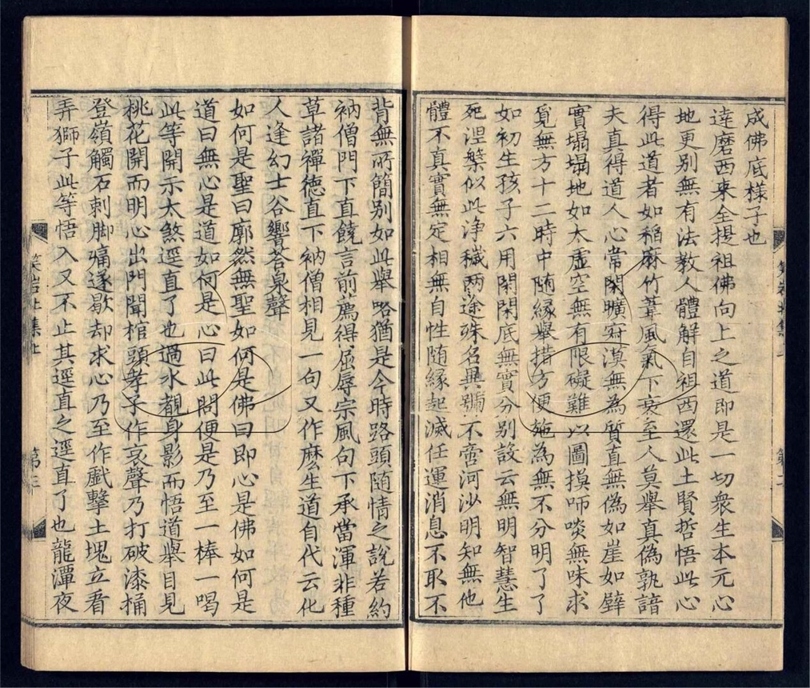 成佛底様子也
達磨西來全提祖佛向上之道即是一切衆生本元心
地更别無有法教人體解自祖西還此土賢哲悟此心
得此道者如稻麻竹葦風氣下衰至人莫舉真偽孰諳
夫真得道人心常閑曠寂漠無為質直無偽如崖如壁
實塌塌地如太虚空無有限礙難以圖摸師啖無味求
覓無方十二時中随縁舉措方便施為無不分明了了
如初生孩子六用閑閑底無實分别設云無明智慧生
死涅槃似此浄穢兩途殊名異號不啻河沙明知無他
體不真實無定相無自性随縁起滅任運消息不取不
背無所簡别如此舉略猶是今時路頭随情之說若約
衲僧門下直饒言前薦得屈辱宗風句下承當渾非種
草諸禪德直下衲僧相見一句又作麽生道自代云化
人逢幻士谷響荅泉聲
如何是聖曰廓然無聖如何是佛曰即心是佛如何是
道曰無心是道如何是心曰此問便是乃至一棒一喝
此等開示太煞逕直了也過水覩身影而悟道舉目見
桃花開而明心出門聞棺頭孝子作哀聲乃打破漆桶
登嶺觸石刺脚痛遂歇却求心乃至作戲擊土塊立看
弄獅子此等悟入又不止其逕直之逕直了也龍潭夜
笑岩北集上
第三